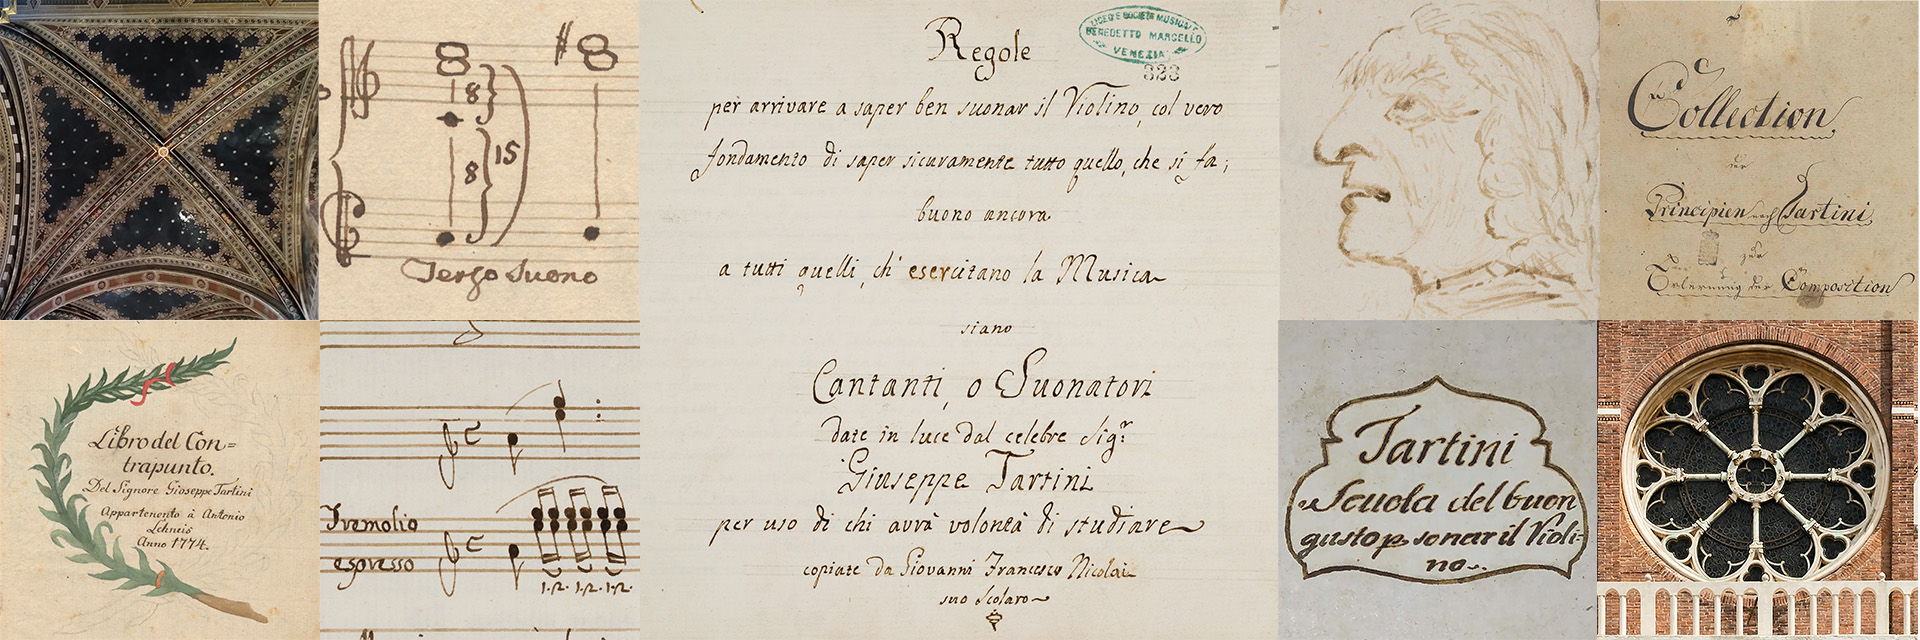 8
8
15
Terzo Suono
Regole
LICEO E SOCIETÀ MUSICALE
BENEDETTO MARCELLO
VENEZIA
323
per arrivare a saper ben suonar il Violino, col vero
fondamento di saper sicuramente tutto quello, che si fa;
buono ancora
a tutti quelli, ch' esercitano la Musica
siano
Cantanti, o Suonatori
date in luce dal celebre Sigr.
Giuseppe Tartini
per uso di chi avrà volontà di studiare
copiate da Giovanni Francesco Nicolai
suo Scolaro
Collection
der
Principien nach Tartini
zur
Erlernung der Composition
Libro del Con=
trapunto.
Del Signore Gioseppe Tartini
Appartenento à Antonio
Lehneis
Anno 1774.
Tremolio
espresso
1.2. 1.2. 1.2.
Tartini
Scuola del buon
gusto p sonar il Violi=
no.